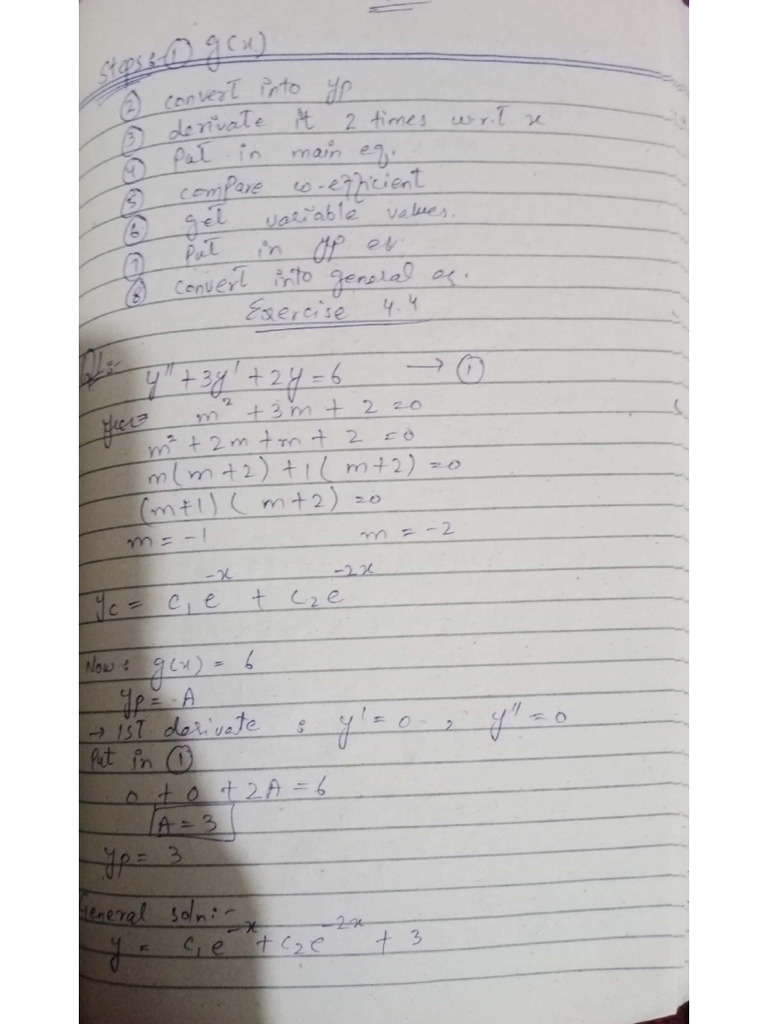 Steps: ① g(x)
② convert into yp
③ derivate it 2 times w.r.t x
④ Put in main eq.
⑤ compare co-efficient
⑥ get variable values.
⑦ Put in yp
⑧ convert into general eq.
Exercise 4.4
Q1:- y'' + 3y' + 2y = 6 → ①
m² + 3m + 2 = 0
m² + 2m + m + 2 = 0
m(m+2) + 1(m+2) = 0
(m+1)(m+2) = 0
m = -1 m = -2
yc = c₁e^-x + c₂e^-2x
Now: g(x) = 6
yp = A
→ 1st derivate : y' = 0 , y'' = 0
Put in ①
0 + 0 + 2A = 6
A = 3
yp = 3
General soln:-
y = c₁e^-x + c₂e^-2x + 3